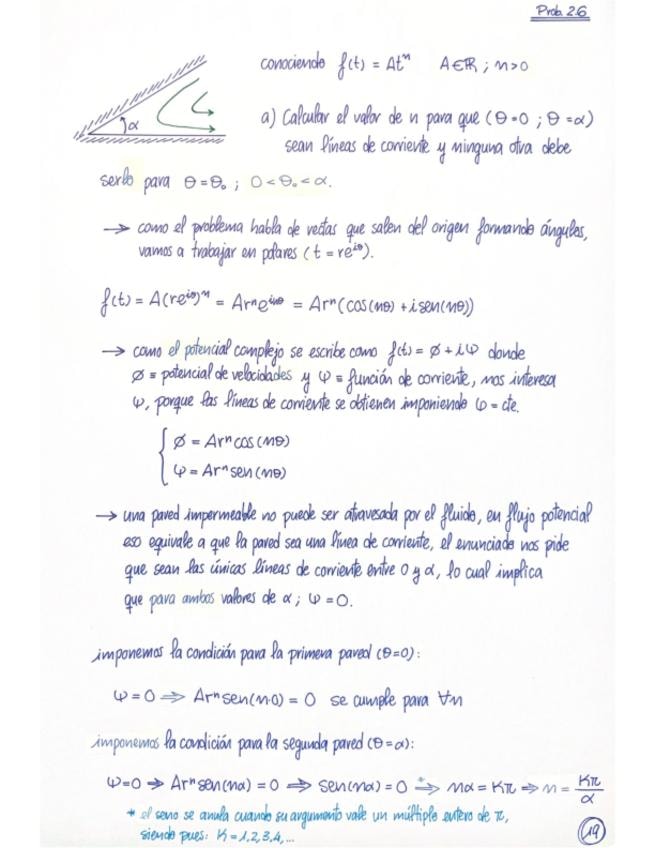 Prob. 2.6
conociendo f(t) = Atⁿ A∈ℝ ; n>0
α
a) Calcular el valor de n para que (θ=0 ; θ=α)
sean líneas de corriente y ninguna otra debe
serlo para θ=θ₀ ; 0<θ₀<α.
→ como el problema habla de rectas que salen del origen formando ángulos,
vamos a trabajar en polares (t = re^{iθ}).
f(t) = A(re^{iθ})ⁿ = Arⁿe^{inθ} = Arⁿ(cos(nθ) + i sen(nθ))
→ como el potencial complejo se escribe como f(t) = ø + iψ donde
ø ≡ potencial de velocidades y ψ ≡ función de corriente, nos interesa
ψ, porque las líneas de corriente se obtienen imponiendo ψ = cte.
{ ø = Arⁿcos(nθ)
ψ = Arⁿsen(nθ)
→ una pared impermeable no puede ser atravesada por el fluido, en flujo potencial
eso equivale a que la pared sea una línea de corriente, el enunciado nos pide
que sean las únicas líneas de corriente entre 0 y α, lo cual implica
que para ambos valores de α ; ψ = 0.
imponemos la condición para la primera pared (θ=0):
ψ = 0 ⇒ Arⁿsen(n·0) = 0 se cumple para ∀n
imponemos la condición para la segunda pared (θ=α):
ψ=0 ⇒ Arⁿsen(nα) = 0 ⇒ sen(nα) = 0 *⇒ nα = Kπ ⇒ n = Kπ/α
* el seno se anula cuando su argumento vale un múltiplo entero de π,
siendo pues: K = 1,2,3,4,...
19